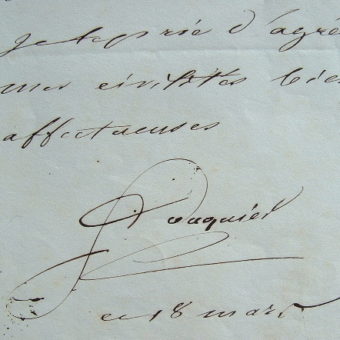 je te prie d'agré
mes civilités bien
affectueuses
Pasquier
ce 18 mars